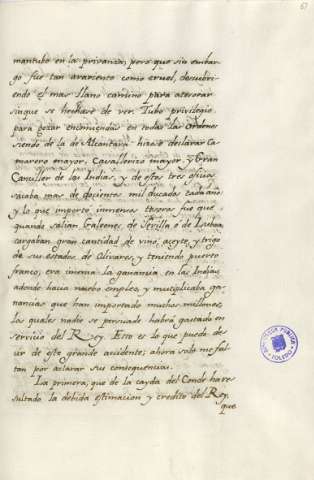 67
mantubo en la privanza; pero que sin embar-
go fue tan avariento como cruel, descubri-
endo el mas llano camino para atesorar
sin que se hechase de ver. Tubo privilegio
para gozar encomiendas en todas las ordenes
siendo de la de Alcantara: hizose declarar Ca-
marero mayor, Cavallerizo mayor, y Gran
Canciller de las Indias, y de estos tres oficios
sacaba mas de docientos mil ducados cada año
y lo que importó inmensos tesoros fue que
quando salian Galeones de Sevilla ó de Lisboa
cargaban gran cantidad de vino, aceyte, y trigo
de sus estados de Olivares, y teniendo puerto
franco, era inmensa la ganancia en las Indias
adonde hacia nuebo empleo, y multiplicaba ga-
nancias que han importado muchos millones,
los quales nadie se persuade habrá gastado en
servicio del Rey. Esto es lo que puedo de-
cir de este grande accidente; ahora solo me fal-
tan por aclarar sus consequencias.
La primera, que de la cayda del Conde ha re-
sultado la debida estimacion y credito del Rey,
que
TOLEDO